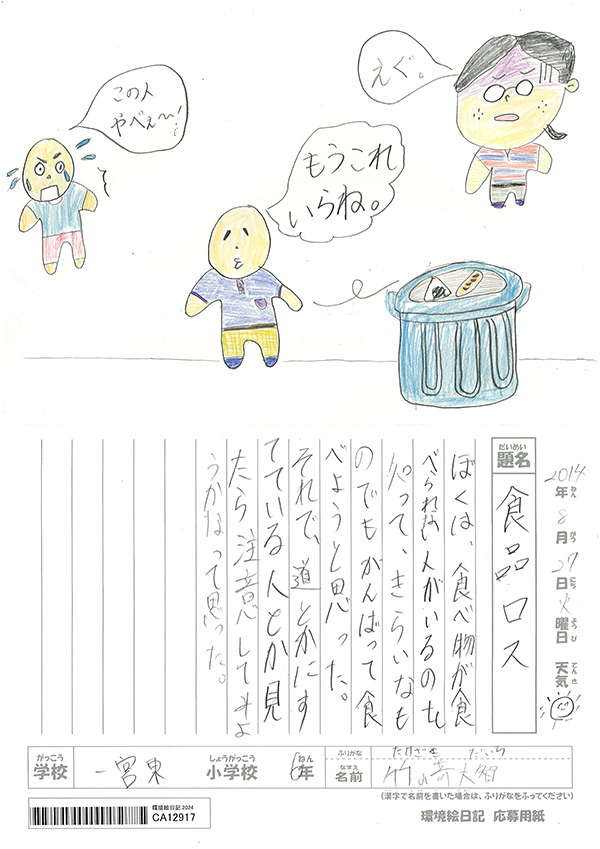 この人
やべぇ〜！
えぐ。
もうこれ
いらね。
2014年8月27日火曜日 天気
ねん がつ にち ようび てんき
だいめい
題名
食品ロス
ぼくは、食べ物が食
べられない人がいるのも、
知って、きらいなも
のでもがんばって食
べようと思った。
それで、道とかにす
てている人とか見
たら注意してみよ
うかなって思った。
がっこう
学校
一宮東
しょうがっこう
小学校
ねん
6年
ふりがな
たけざき だいち
なまえ
名前
大智
(漢字で名前を書いた場合は、ふりがなをふってください)
環境絵日記 2024
CA12917
環境絵日記 応募用紙